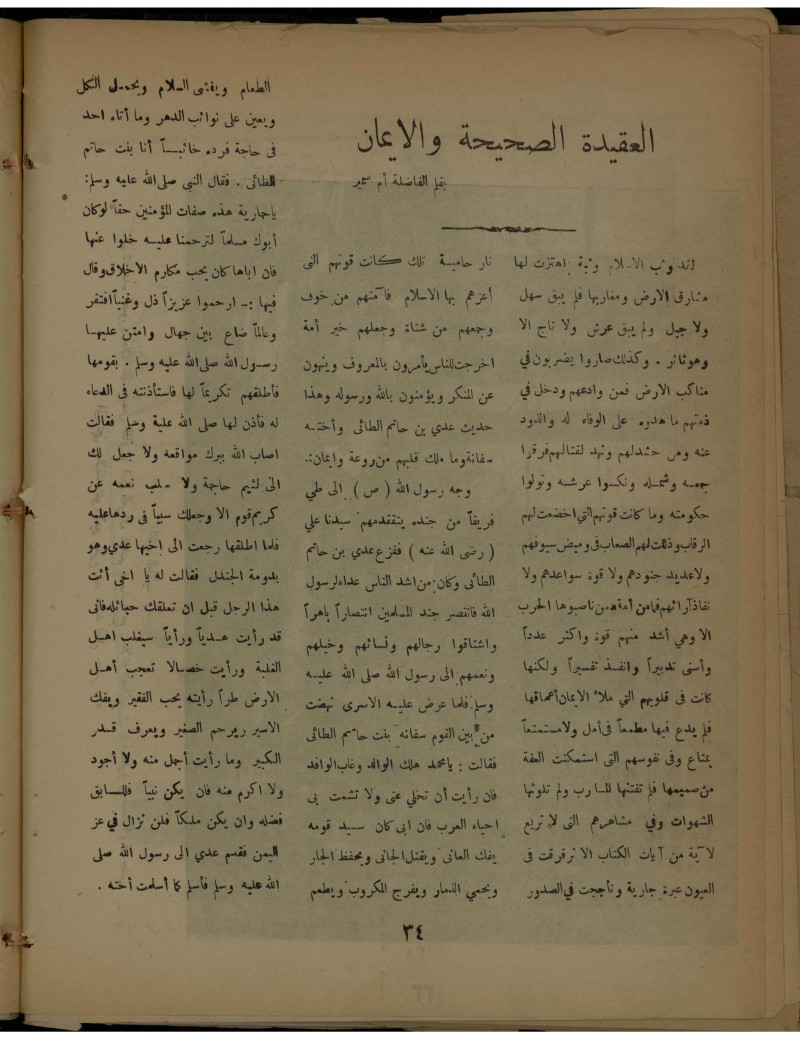 العقيدة الصحيحة والايمان
بقلم الفاضلة أم سمير
لقد وثب الاسلام وثبة إهتزت لها
مشارق الارض ومغاربها فلم يبق سهل
ولا جبل ولم يبق عرش ولا تاج الا
وهو ثائر . وكذلك صاروا يضربون في
مناكب الارض فمن وادعهم ودخل في
ذمتهم ما هدوه على الوفاء له والذود
عنه ومن حشد لهم ونهد لقتالهم فرقوا
جمعه وشمله ونكسوا عرشه وتولوا
حكومته وما كانت قوتهم التي اخضعت لهم
الرقاب وذللت لهم الصعاب فى وميض سيوفهم
ولا عديد جنودهم ولا قوة سواعدهم ولا
نفاذ آرائهم فما من أمة ممن ناصبوها الحرب
الا وهي أشد منهم قوة واكثر عدداً
وأسنى تدبيراً وانفذ تفسيراً ولكنها
كانت فى قلوبهم التي ملأ الايمان أعماقها
فلم يدع فيها مطمعاً فى أمل ولا مستمتعاً
بمتاع وفى نفوسهم التى استمكنت العفة
من صميمها فلم تفتنها المآرب ولم تلوثها
الشهوات وفي مشاعرهم التى لا تريع
لآية من آيات الكتاب الا ترقرقت فى
العيون عبرة جارية وتأججت في الصدور
نار حاميسة تلك كانت قوتهم التى
أعزهم بها الاسلام فآمنهم من خوف
وجمعهم من شتاة وجعلهم خير أمة
اخرجت للناس يأمرون بالمعروف وينهون
عن المنكر ويؤمنون بالله ورسوله وهذا
حديث عدي بن حاتم الطائى وأخته
سفانة وما ملك قلبهم من روعة وايمان :.
وجه رسول الله ( ص ) الى طي
فريقاً من جنده يتقدمهم سيدنا علي
( رضى الله عنه ) ففزع عدي بن حاتم
الطائى وكان من اشد الناس عداء لرسول
الله فانتصر جند المسلمين انتصاراً باهراً
واشتاقوا رجالهم ونسائهم وخيلهم
ونعمهم الى رسول الله صلى الله عليه
وسلم فلما عرض عليه الاسرى نهضت
من بين القوم سفانه بنت حاتم الطائى
فقالت : يا محمد هلك الوالد وغاب الوافد
فان رأيت أن تخلي عنى ولا تشمت بى
احياء العرب فان ابى كان سيد قومه
يفك العانى ويقتل الجانى ويحفظ الجار
ويحمي الذمار ويفرج المكروب ويطعم
الطعام ويفشى السلام ويحمل الكل
ويعين على نوائب الدهر وما أتاه احد
فى حاجة فرده خائباً أنا بنت حاتم
الطائى . فقال النبي صلى الله عليه وسلم:
يا جارية هذه صفات المؤمنين حقاً لو كان
أبوك مسلماً لترحمنا عليه خلوا عنها
فان اباها كان يحب مكارم الاخلاق وقال
فيها :- ارحموا عزيزاً ذل وغنياً افتقر
وعالماً ضاع بين جهال وامتن عليها
رسول الله صلى الله عليه وسلم . بقومها
فأطلقهم تكريماً لها فاستأذنته فى الدعاء
له فأذن لها صلى الله علية وسلم فقالت
اصاب الله ببرك مواقعة ولا جعل لك
الى لئيم حاجة ولا سلب نعمه عن
كريم قوم الا وجعلك سبباً فى ردها عليه
فلما اطلقها رجعت الى اخيها عدي وهو
بدومة الجندل فقالت له يا اخى أئت
هذا الرجل قبل ان تعلقك حبائله فانى
قد رأيت هدياً ورأياً سيغلب اهل
الغلبة ورأيت خصالا تعجب أهل
الارض طراً رأيته يحب الفقير ويفك
الاسير ويرحم الصغير ويعرف قدر
الكبير وما رأيت أجمل منه ولا أجود
ولا اكرم منه فان يكن نبياً فللسابق
فضله وان يكن ملكاً فلن تزال في عز
اليمن فقدم عدي الى رسول الله صلى
الله عليه وسلم فأسلم كما أسلمت أخته .
٣٤